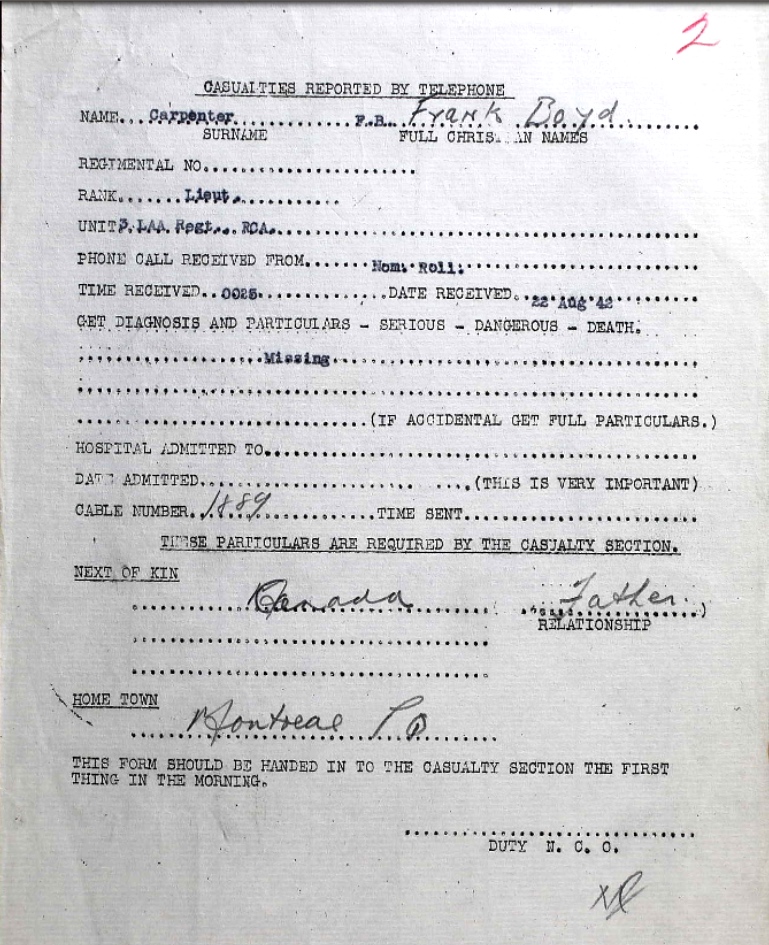 2
CASUALTIES REPORTED BY TELEPHONE
NAME... Carpenter.................F.B... Frank Boyd.........
SURNAME FULL CHRIS. AN NAMES
REGIMENTAL NO.........................
RANK.......Lieut.............
UNIT 3.LAA.Regt...RCA..................................................
PHONE CALL RECEIVED FROM.......Nom. Roll:..........................
TIME RECEIVED..0025..............DATE RECEIVED..22 Aug 42..........
GET DIAGNOSIS AND PARTICULARS - SERIOUS - DANGEROUS - DEATH.
.....................Missing..........................................
......................................................................
.................................(IF ACCIDENTAL GET FULL PARTICULARS.)
HOSPITAL ADMITTED TO..................................................
DATE ADMITTED..............................(THIS IS VERY IMPORTANT)
CABLE NUMBER..1889..............TIME SENT..........................
THESE PARTICULARS ARE REQUIRED BY THE CASUALTY SECTION.
NEXT OF KIN
.............Canada............... ....Father........)
RELATIONSHIP
........................................
........................................
HOME TOWN
......Montreal PQ..............
THIS FORM SHOULD BE HANDED IN TO THE CASUALTY SECTION THE FIRST
THING IN THE MORNING.
.................................
DUTY N. C. O.